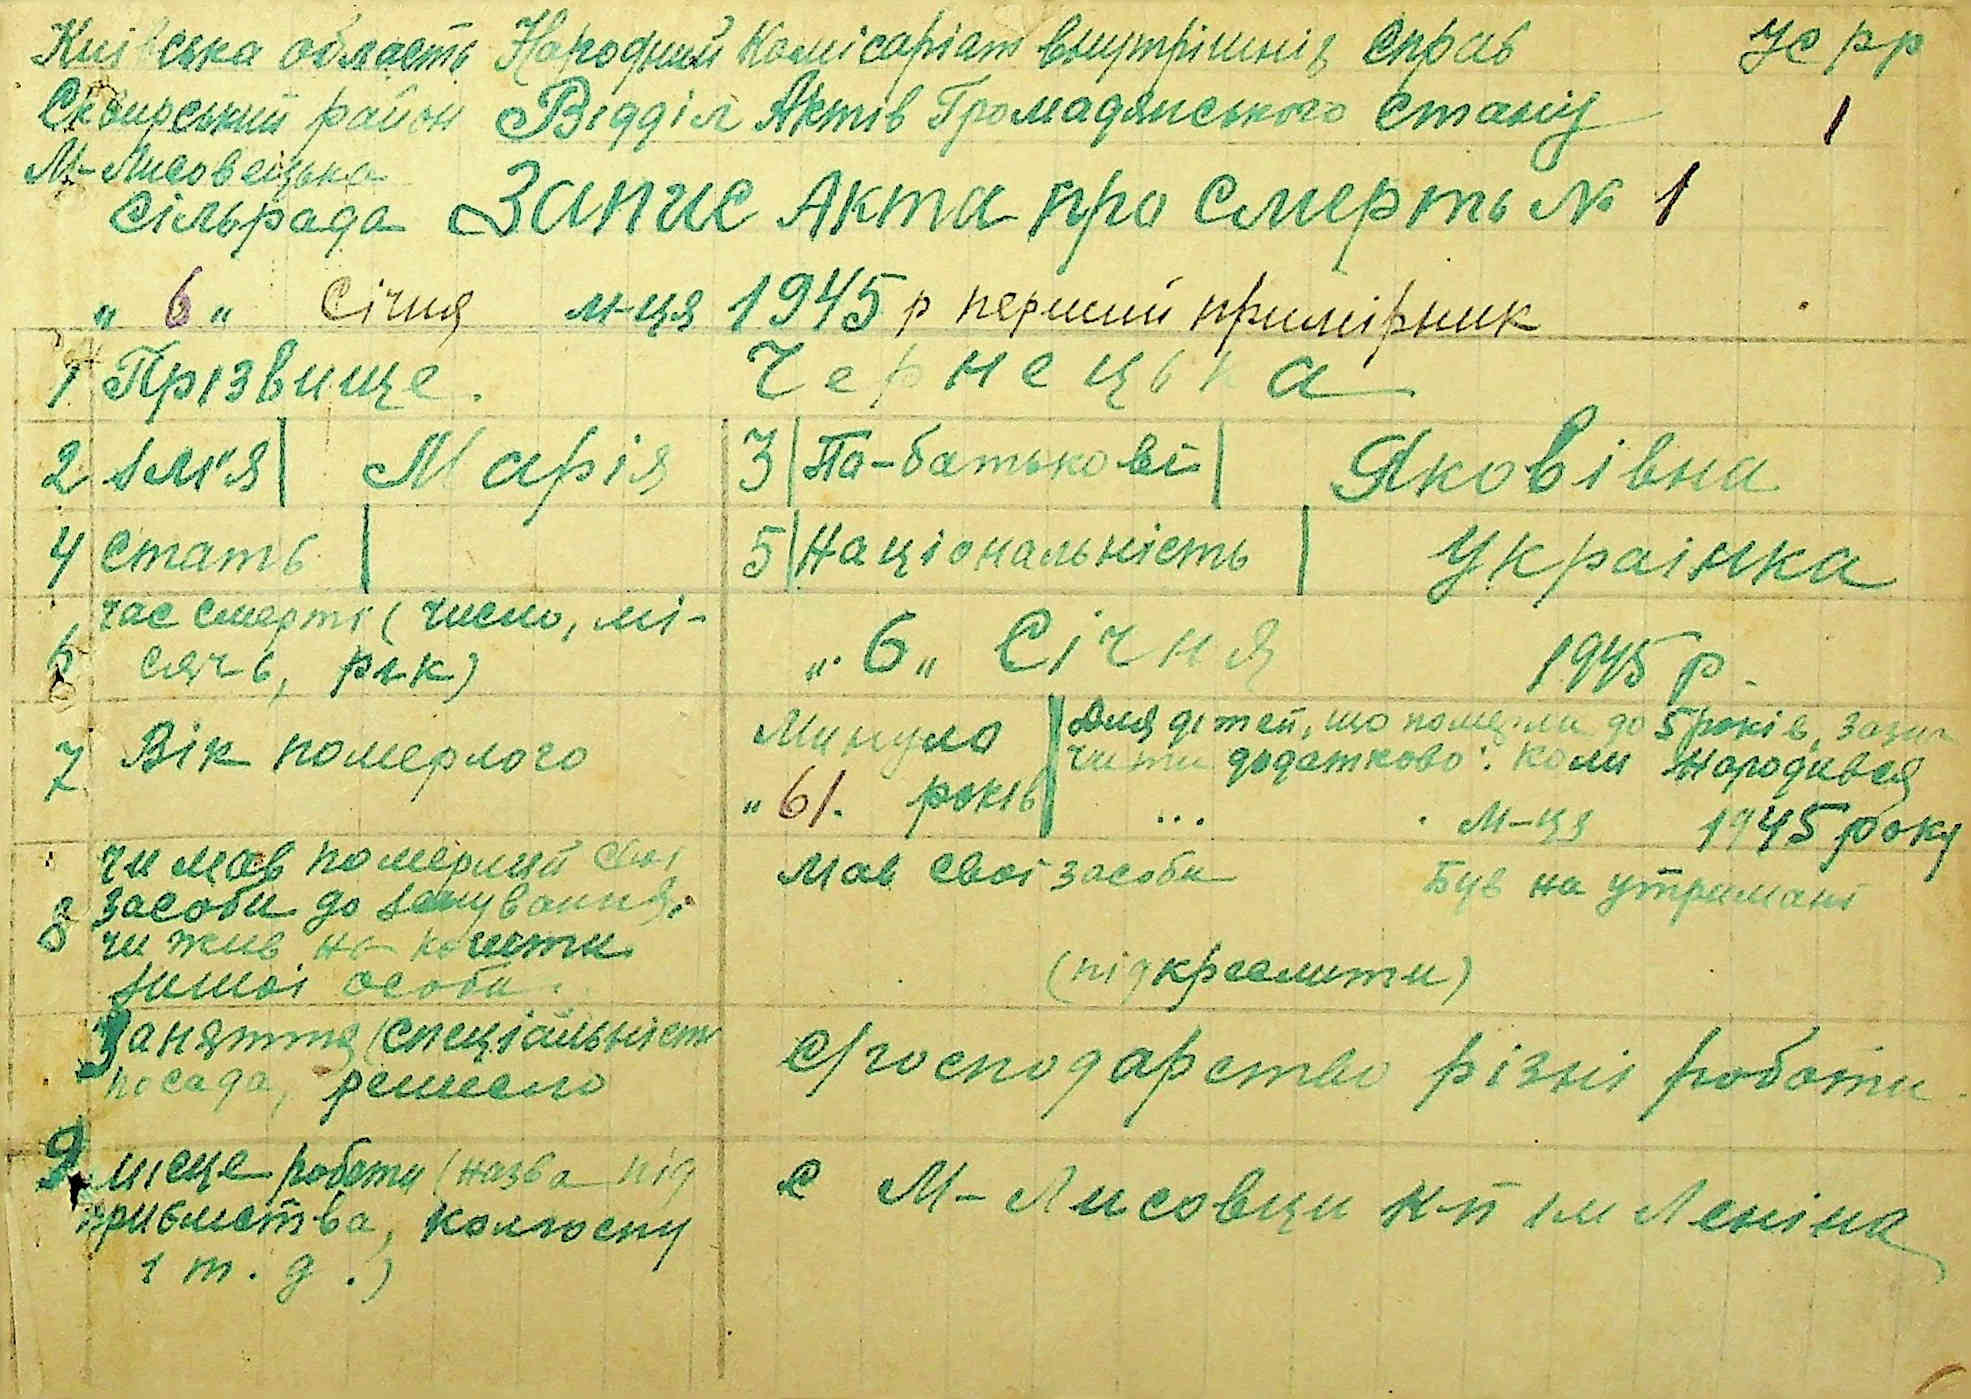 Київська область Народний Комісаріат внутрішніх справ УСРР
Сквирський район Відділ Актів Громадянського стану 1
М-Лисовецька
сільрада Запис Акта про Смерть № 1
"6" Січня м-ця 1945 р перший примірник
1 Прізвище. Чернецька
2 ім'я Марія 3 По-батькові Яковівна
4 стать 5 Національність Українка
6 час смерті (число, мі-
сяць, рік) "6" Січня 1945 р.
7 Вік померлого Минуло "61. років
Для дітей, що померли до 5 років, зазна
чити додатково: коли народився
... м-ця 1945 року
8 чи мав померлий свої
засоби до існування,
чи жив на кошти
іншої особи.
Мав свої засоби Був на утримані
(підкреслити)
Заняття (спеціальність
посада, ремесло
С/господарство різні роботи
9 місце роботи (назва під
приємства, колгоспу
і т. д.)
с М-Лисовци к-п ім Леніна